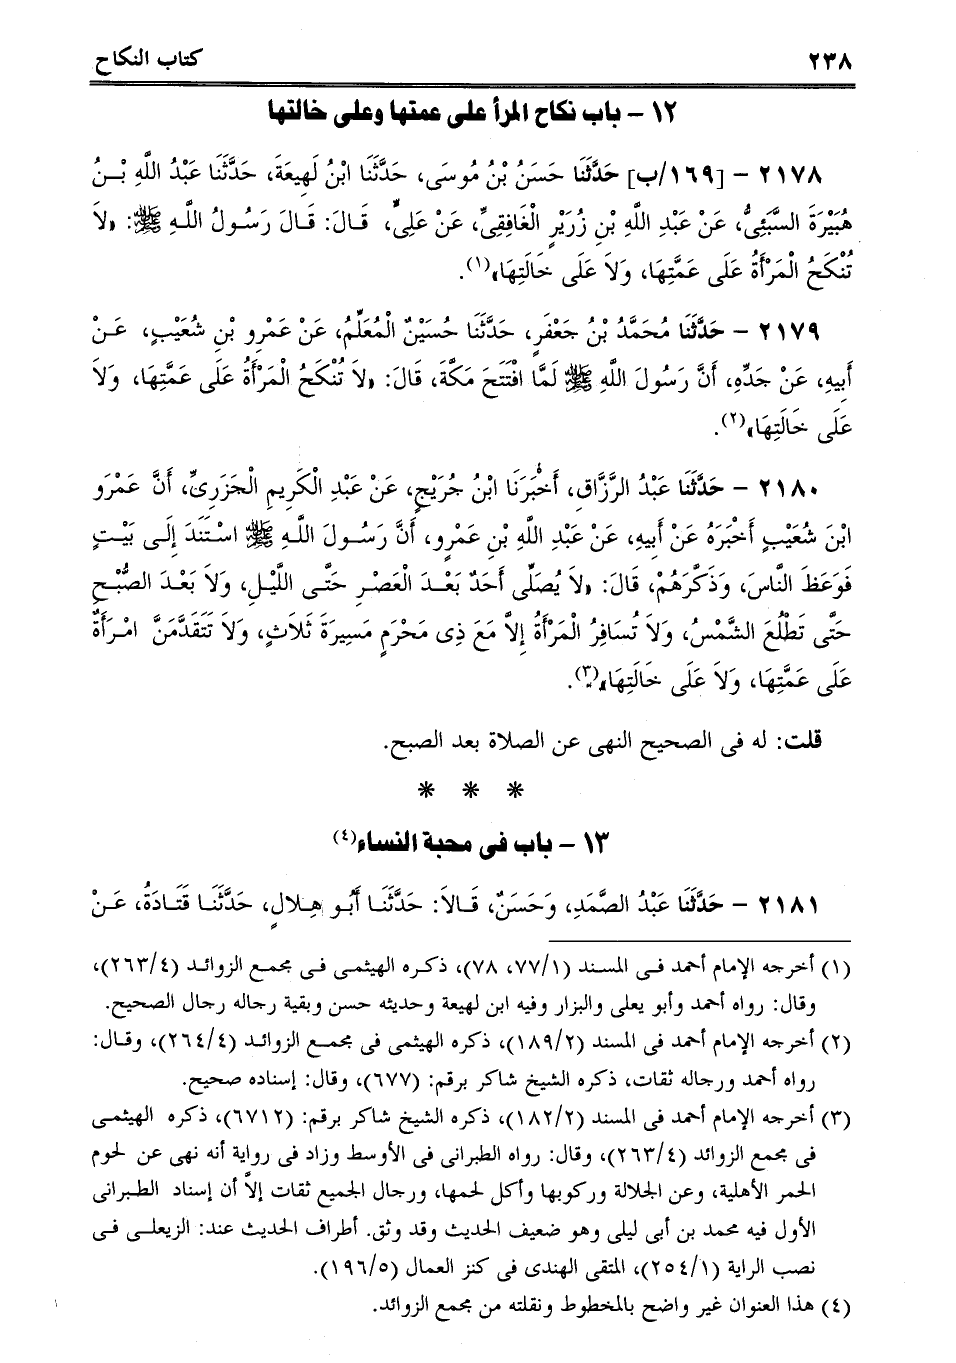 ٢٣٨ كتاب النكاح
١٢ - باب نكاح المرأ على عمتها وعلى خالتها
٢١٧٨ - [١٦٩/ب] حَدَّثَنَا حَسَنُ بْنُ مُوسَى، حَدَّثَنَا ابْنُ لَهِيعَةَ، حَدَّثَنَا عَبْدُ اللَّهِ بْنُ
هُبَيْرَةَ السَّبَئِىُّ، عَنْ عَبْدِ اللَّهِ بْنِ زُرَيْرٍ الْغَافِقِىِّ، عَنْ عَلِىٍّ، قَالَ: قَالَ رَسُولُ اللَّهِ ﷺ: «لاَ
تُنْكَحُ الْمَرْأَةُ عَلَى عَمَّتِهَا، وَلاَ عَلَى خَالَتِهَا»(١).
٢١٧٩ - حَدَّثَنَا مُحَمَّدُ بْنُ جَعْفَرٍ، حَدَّثَنَا حُسَيْنٌ الْمُعَلِّمُ، عَنْ عَمْرِو بْنِ شُعَيْبٍ، عَنْ
أَبِيهِ، عَنْ جَدِّهِ، أَنَّ رَسُولَ اللَّهِ ﷺ لَمَّا افْتَتَحَ مَكَّةَ، قَالَ: «لاَ تُنْكَحُ الْمَرْأَةُ عَلَى عَمَّتِهَا، وَلاَ
عَلَى خَالَتِهَا»(٢).
٢١٨٠ - حَدَّثَنَا عَبْدُ الرَّزَّاقِ، أَخْبَرَنَا ابْنُ جُرَيْجٍ، عَنْ عَبْدِ الْكَرِيمِ الْجَزَرِىِّ، أَنَّ عَمْرَو
ابْنَ شُعَيْبٍ أَخْبَرَهُ عَنْ أَبِيهِ، عَنْ عَبْدِ اللَّهِ بْنِ عَمْرٍو، أَنَّ رَسُولَ اللَّهِ ﷺ اسْتَنَدَ إِلَى بَيْتٍ
فَوَعَظَ النَّاسَ، وَذَكَّرَهُمْ، قَالَ: «لاَ يُصَلِّى أَحَدٌ بَعْدَ الْعَصْرِ حَتَّى اللَّيْلِ، وَلاَ بَعْدَ الصُّبْحِ
حَتَّى تَطْلُعَ الشَّمْسُ، وَلاَ تُسَافِرُ الْمَرْأَةُ إِلاَّ مَعَ ذِى مَحْرَمٍ مَسِيرَةَ ثَلاَثٍ، وَلاَ تَتَقَدَّمَنَّ امْرَأَةٌ
عَلَى عَمَّتِهَا، وَلاَ عَلَى خَالَتِهَا»(٣).
قلت: له فى الصحيح النهى عن الصلاة بعد الصبح.
* * *
١٣ - باب فى محبة النساء(٤)
٢١٨١ - حَدَّثَنَا عَبْدُ الصَّمَدِ، وَحَسَنٌ، قَالاَ: حَدَّثَنَا أَبُو هِلاَلٍ، حَدَّثَنَا قَتَادَةُ، عَنْ
(١) أخرجه الإمام أحمد فى المسند (٧٧/١، ٧٨)، ذكره الهيثمى فى مجمع الزوائد (٢٦٣/٤)،
وقال: رواه أحمد وأبو يعلى والبزار وفيه ابن لهيعة وحديثه حسن وبقية رجاله رجال الصحيح.
(٢) أخرجه الإمام أحمد فى المسند (١٨٩/٢)، ذكره الهيثمى فى مجمع الزوائد (٢٦٤/٤)، وقال:
رواه أحمد ورجاله ثقات، ذكره الشيخ شاكر برقم: (٦٧٧)، وقال: إسناده صحيح.
(٣) أخرجه الإمام أحمد فى المسند (١٨٢/٢)، ذكره الشيخ شاكر برقم: (٦٧١٢)، ذكره الهيثمى
فى مجمع الزوائد (٢٦٣/٤)، وقال: رواه الطبرانى فى الأوسط وزاد فى رواية أنه نهى عن لحوم
الحمر الأهلية، وعن الجلالة وركوبها وأكل لحمها، ورجال الجميع ثقات إلاَّ أن إسناد الطبرانى
الأول فيه محمد بن أبى ليلى وهو ضعيف الحديث وقد وثق. أطراف الحديث عند: الزيعلى فى
نصب الراية (٢٥٤/١)، المتقى الهندى فى كنز العمال (١٩٦/٥).
(٤) هذا العنوان غير واضح بالمخطوط ونقلته من مجمع الزوائد.